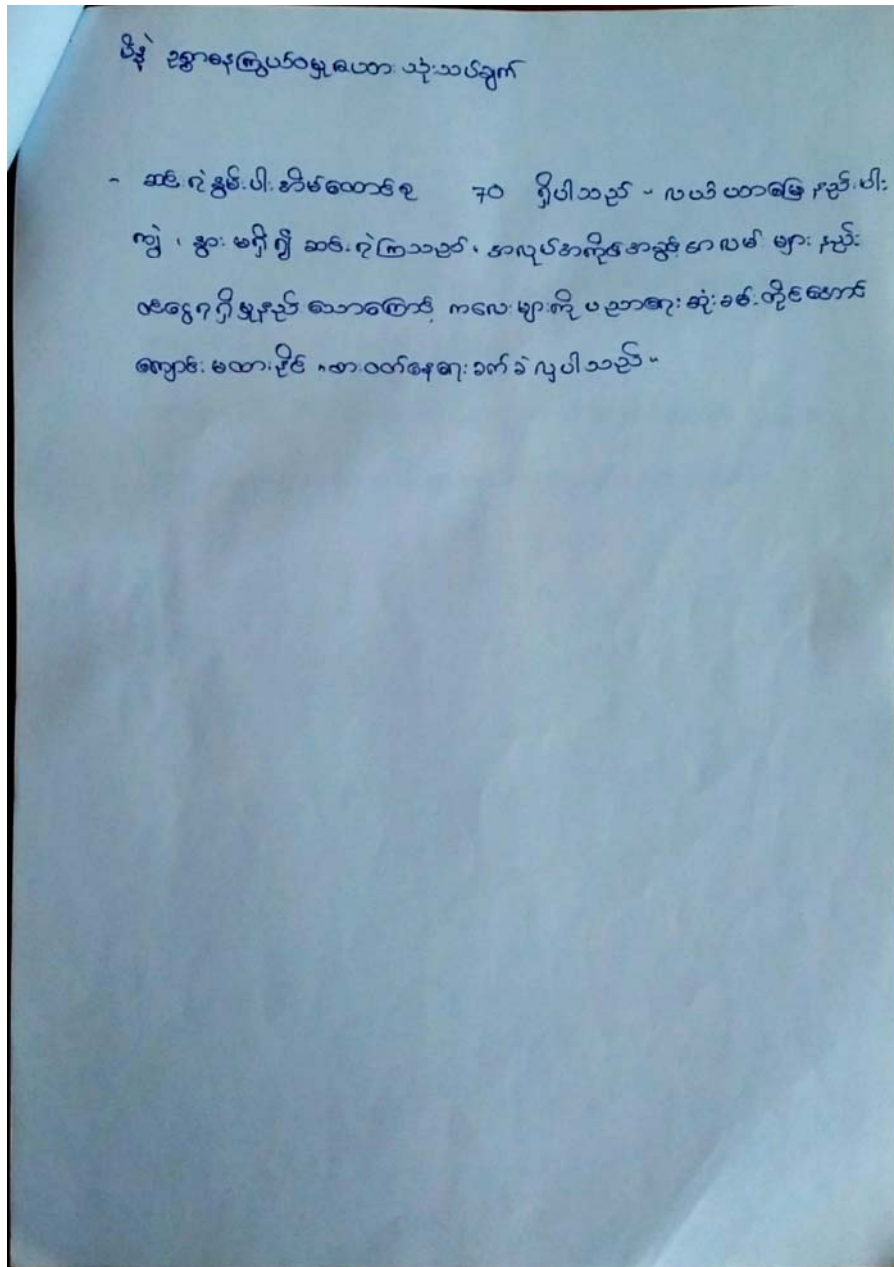 ပိုနဲ ဥစ္စာဓနကြွယ်ဝမှုအထား သုံးသပ်ချက်
- ဆင်းရဲနွမ်းပါးအိမ်ထောင်စု 70 ရှိပါသည် - လယ်ယာမြေနည်းပါး
ကျွဲ၊ နွား မရှိ၍ ဆင်းရဲကြသည်၊ အလုပ်အကိုင်အခွင့်အလမ်း များ နည်း
ဝင်ငွေရရှိမှုနည်း သောကြောင့် ကလေးများကို ပညာရေးဆုံးခန်းတိုင်အောင်
ကျောင်းမထားနိုင် စားဝတ်နေရေးခက်ခဲလှပါသည်"